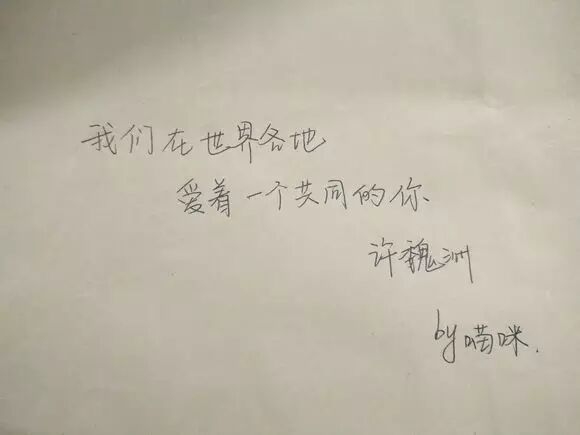 我们在世界各地
爱着一个共同的你
许魏洲
by喵咪.